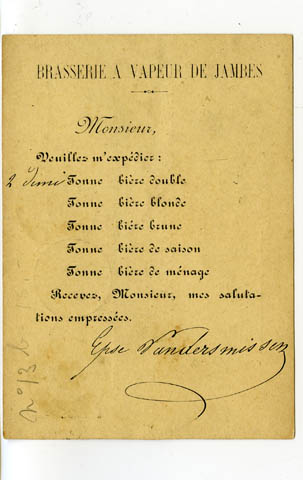 BRASSERIE A VAPEUR DE JAMBES
Monsieur,
Veuillez m'expédier :
2 demi Tonne bière double
Tonne bière blonde
Tonne bière brune
Tonne bière de saison
Tonne bière de ménage
Recevez, Monsieur, mes saluta-
tions empressées.
Epse Vandersmissen